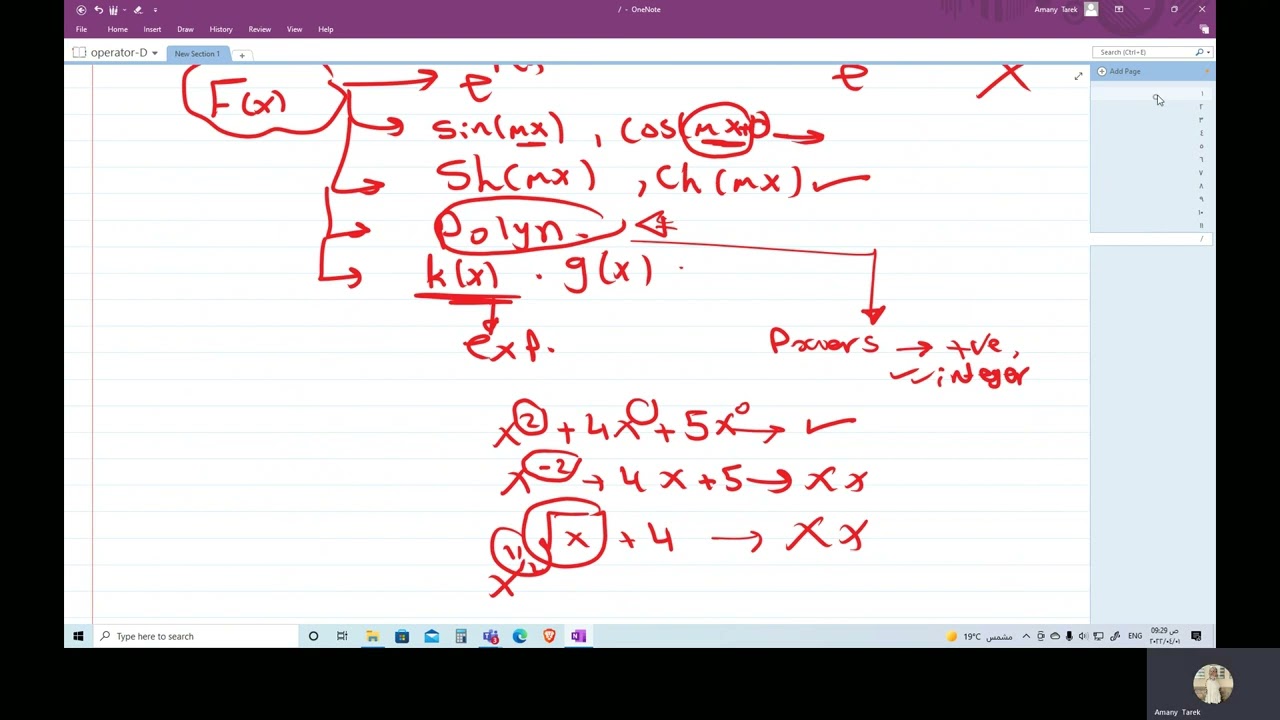 / - OneNote
Amany Tarek
File Home Insert Draw History Review View Help
operator-D New Section 1
Search (Ctrl+E)
Add Page
F(x)
e
X
sin(mx) , cos(mx+
Sh(mx) , Ch(mx) ✓
Polyn.
k(x) . g(x)
exp.
Powers → +ve,
✓✓ integer
x² + 4x + 5x⁰ → ✓
x⁻² + 4x + 5 → X X
√x + 4 → X X
x^1/2
١
٢
٣
٤
٥
٦
٧
٨
٩
١٠
١١
/
Type here to search
19°C مشمس
ENG
09:29 ص
٢٠٢٢/٠٤/٠١
Amany Tarek